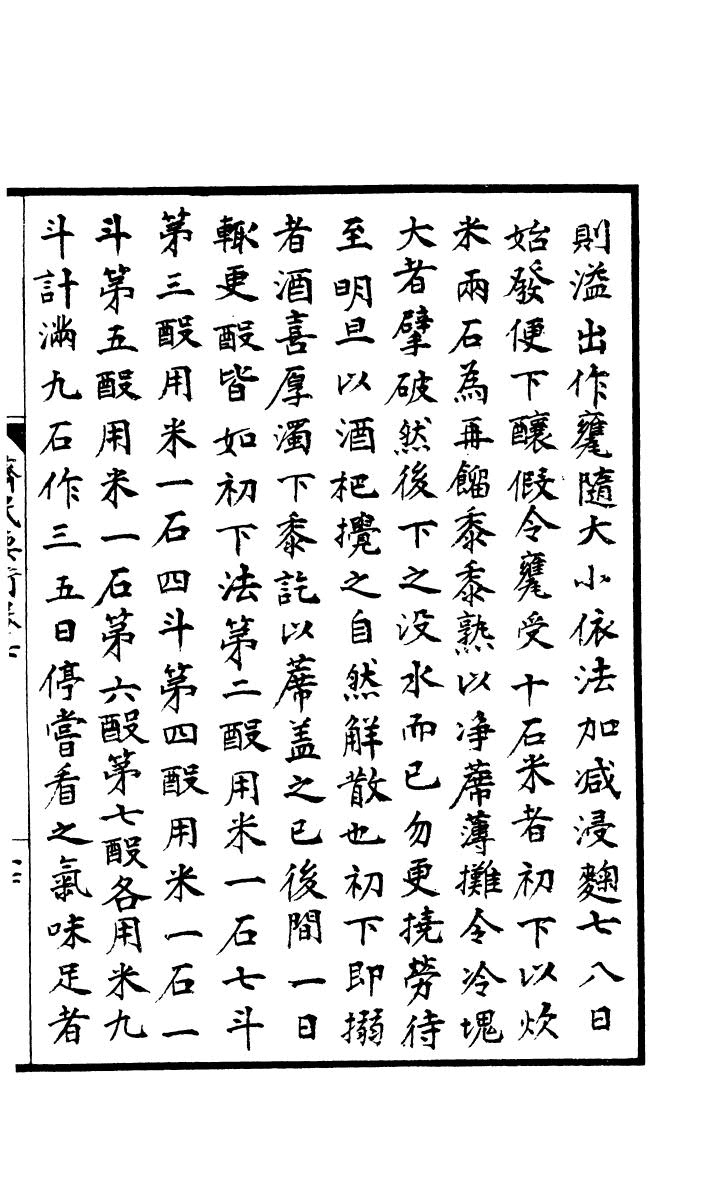 則溢出作甕隨大小依法加減浸麴七八日
始發便下釀假令甕受十石米者初下以炊
米兩石為再餾黍黍熟以净蓆薄攤令冷塊
大者擘破然後下之没水而已勿更撓勞待
至明旦以酒杷攪之自然解散也初下即搦
者酒喜厚濁下黍訖以蓆盖之已後間一日
輙更酘皆如初下法第二酘用米一石七斗
第三酘用米一石四斗第四酘用米一石一
斗第五酘用米一石第六酘第七酘各用米九
斗計滿九石作三五日停嘗看之氣味足者